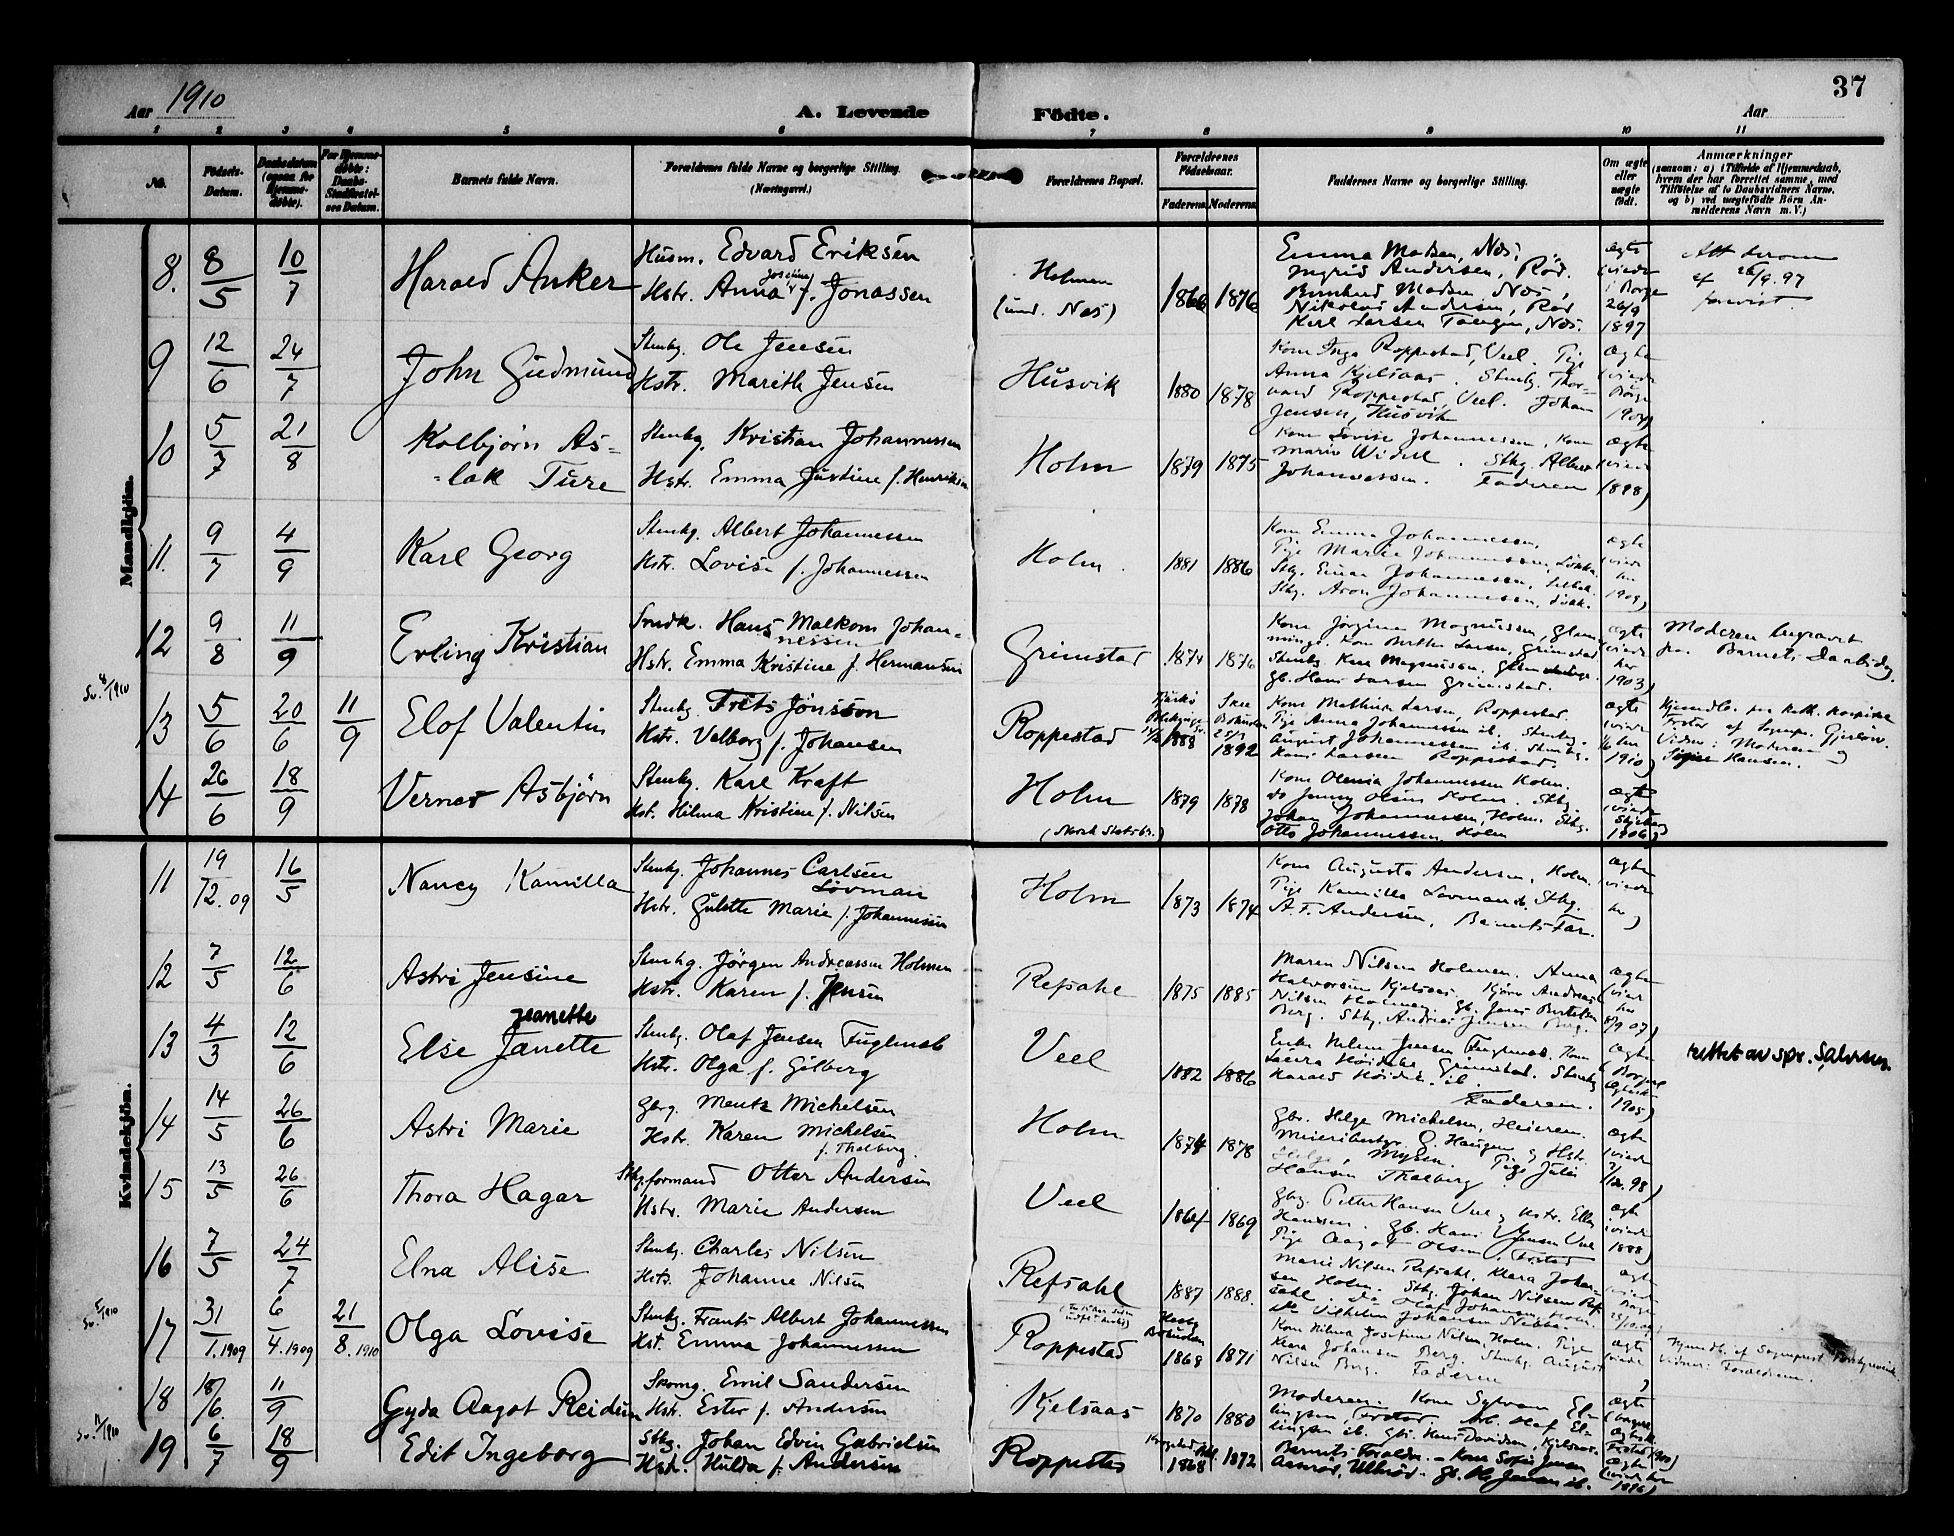 37
Aar 1910
A. Levende Födte.
Aar
1 2 3 4 5 6 7 8 9 10 11
No.
Födsels-
Datum.
Daabsdatum
(ogsaa for
Hjemme-
döbte).
For Hjemme-
döbte:
Daabs-
Stadfæstel-
ses Datum.
Barnets fulde Navn.
Forældrenes fulde Navne og borgerlige Stilling.
(Næringsvei.)
Forældrenes Bopæl.
Forældrenes
Födselsaar.
Faderens Moderens
Faddernes Navne og borgerlige Stilling.
Om ægte
eller
uægte
födt.
Anmærkninger
(saasom: a) i Tilfælde af Hjemmedaab,
hvem der har forrettet samme, med
Tilföielse af to Daabsvidners Navne,
og b) ved uægtefödte Börn An-
melderens Navn m. V.)
Mandkjön.
8. 8/5 10/7 Harald Anker
Husm. Edvard Eriksen
Hstr. Anna Josefine f. Jonassen
Holmen
(und. Næs)
1866 1876
Emma Madsen, Næs,
Ingrid Andersen, Röd.
Bernhard Madsen Næs,
Nikolai Andersen, Röd
Karl Larsen Tangen, Næs.
ægte
(viede
i Borge
26/9
1897
Att derom
af 26/9.97
forevist.
9 12/6 24/7 John Gudmund
Stenhg. Ole Jensen
Hstr. Marith Jensen
Husvik
1880 1878
Kone Inga Roppestad, Veel. Pige
Anna Kjelsaas. Stenhg. Thor-
vald Roppestad, Veel. Johan
Jensen, Husvik
ægte
(viede
Borge
10 5/7 21/8 Kolbjörn As-
-lak Ture
Stenhg. Kristian Johannessen
Hstr. Emma Justine f. Henriksen
Holm
1879 1875
Kone Lovise Johannessen, Kone
Marie . Sthg. Albert
Johannessen. Faderen
ægte
(viede
1898)
11. 9/7 4/9 Karl Georg
Stenhg. Albert Johannessen
Hstr. Lovise f. Johannessen
Holm.
1881 1886
Kone Emma Johannessen,
Pige Marie Johannessen,
Sthg. Einar Johannessen,
Sthg. Aron Johannessen,
ægte
(viede
her
1909)
12 9/8 11/9 Erling Kristian
Snedk. Hans Malkom Johan-
nessen
Hstr. Emma Kristine f. Hermansen
Grimstad
1874 1876
Kone Jörgine Magnussen, Glem-
minge. Kone Berthe Larsen, Grimstad
Stenhg Karl Magnussen, Glemminge.
Gb. Hans Larsen Grimstad.
ægte
(viede
her
1903)
Moderen begravet
paa Barnets Daabsdag.
Sv. 8/1910
13 5/6 20/6 11/9 Elof Valentin
Stenhg. Frits Jönsson
Hstr. Valborg f. Johansen
Roppestad
1888
Skee
Bohuslen
1892
Kone Mathilde Larsen, Roppestad.
Pige Anna Johannessen ib. Stenhg.
August Johannessen ib. Stenhg.
Hans Larsen Roppestad.
ægte
(viede
1910)
Vidner: Moderen og
Hansen.
14 26/6 18/9 Verner Asbjörn
Stenhg. Karl Kraft
Hst. Hilma Kristine f. Nilsen
Holm
(Norsk Statsbr.)
1879 1878
Kone Olenia Johannessen Holm.
do Jenny Olsen Holm. Sthg.
Johan Johannessen, Holm. Sthg.
Otto Johannessen Holm
ægte
(viede
Skjeberg
1906)
Kvindekjön.
11 19/12.09 16/5 Nancy Kamilla
Stenhg. Johannes Carlsen
Lövman
Hstr. Gulette Marie f. Johannessen
Holm
1873 1874
Kone Augusta Andersen, Holm.
Pige Kamilla Lovmand, Sthg.
A. F. Andersen, Barnets Far.
ægte
(viede
her)
12 7/5 12/6 Astri Jensine
Stenhg. Jörgen Andreassen Holmen
Hstr. Karen f. Jensen
Refsahl
1875 1885
Maren Nilsen Holmen. Anna
Halvorsen Kjelsaas. Andreas
Nilsen Holmen. Gb. Jens Bertelsen
Berg. Sthg. Andreas Jensen Berg.
ægte
(viede
her
8/9 07)
13 4/3 12/6 Else Janette
Jeanette
Stenhg. Olaf Jensen Fuglenab
Hstr. Olga f. Gilberg
Veel
1882 1886
Enke Helene Jensen Fuglenab. Kone
Laura Höidahl Grimstad. Stenhg
Harald Höidahl ib.
Faderen.
ægte
1905)
rettet av spr. Salvesen.
14 14/5 26/6 Astri Marie
Gbrg. Mentz Michelsen
Hstr. Karen Michelsen
f. Thalberg.
Holm
1874 1878
Gbr. Helge Michelsen, Heieren.
Meieribestyr. G. Haugen og Hstr.
Helga, Mysen. Pige Julie
Hansen Thalberg
ægte
(viede
15 13/5 26/6 Thora Hagar
Sthg.formand Otter Andersen
Hstr. Marie Andersen
Veel
1864 1869
Gbrg. Petter Hansen Veel og Hstr. Ellen
Hanssen. Gb. Hans Jensen Veel
Pige Aagot Olsen, Frstad
ægte
(viede
1888)
16 7/5 24/7 Elna Alise
Stenhg. Charles Nilsen
Hstr. Johanne Nilsen
Refsahl
1887 1888.
Marie Nilsen Refsahl. Klara Johan-
sen Holm. Sthg. Johan Nilsen Ref-
sahl. do Olaf Johansen, Holm.
do Vilhelm Johansen Nabba.
ægte
Sv. 5/1910
17 31/1.1909 6/4.1909 21/8.1910 Olga Lovise
Stenhg. Frants Albert Johannessen
Hst. Emma Johannessen
Roppestad
Bohuslen
1868 1871
Kone Hilma Josefine Nilsen, Holm. Pige
Klara Johansen Berg. Stenhg. August
Nilsen Berg. Faderen
ægte
(viede
)
Vidner: Forældrene.
18 18/6. 11/9 Gyda Aagot Reidun
Skomg. Emil Sandersen
Hstr. Ester f. Andersen
Kjelsaas
1870 1880
Moderen. Kone Sylvan El-
lingsen, Frstad. Olaf El-
lingsen ib. Gbr. Hans Davidsen, Kjelsaas.
ægte
Frstad 1900)
Sv. 11/1910
19 6/7 18/9 Edit Ingeborg
Sthg. Johan Edvin Gabrielsen
Hstr. Hulda f. Andersen
Roppestad
1868 1872
Barnets Foraldre. Kone Sofie Jensen
Ulleröd. Gb. Jensen ib.
ægte
(viede her
1896)